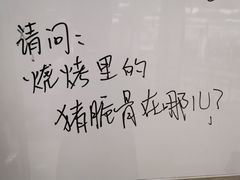 请问：
烧烤里的
猪脆骨在哪儿？